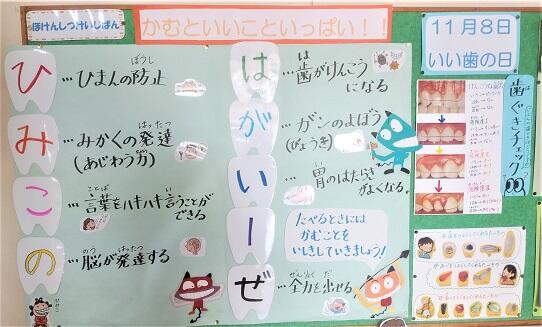 ほけんしつけいじばん
かむといいこといっぱい!!
11月8日
いい歯の日
ひ
…ひまんの防止
ぼうし
み
…みかくの発達
はったつ
(あじわう力)
こ
…言葉をハキハキ言うことが
ことば い
できる
の
…脳が発達する
のう はったつ
は
…歯がけんこう
は
になる
が
…ガンのよぼう
(びょうき)
い
…胃のはたらき
い
がよくなる
ー
たべるときには
かむことを
いしきしていきましょう!
ぜ
…全力を出せる
ぜんりょく だ
歯ぐきチェック
ひみこ